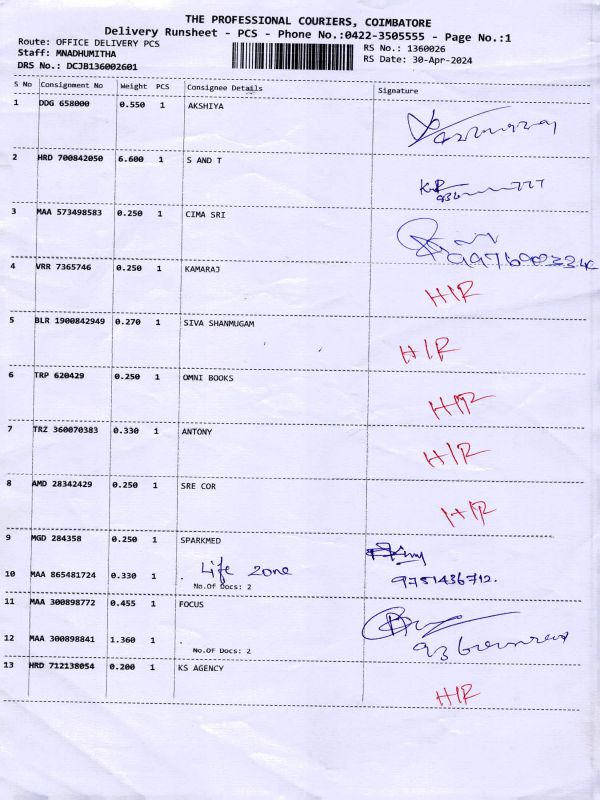 THE PROFESSIONAL COURIERS, COIMBATORE
Delivery Runsheet - PCS - Phone No.:0422-3505555 - Page No.:1
Route: OFFICE DELIVERY PCS
RS No.: 1360026
Staff: MNADHUMITHA
RS Date: 30-Apr-2024
DRS No.: DCJB136002601
S No Consignment No Weight PCS Consignee Details Signature
1 DDG 658000 0.550 1 AKSHIYA
2 HRD 700842050 6.600 1 S AND T
3 MAA 573498583 0.250 1 CIMA SRI
4 VRR 7365746 0.250 1 KAMARAJ
HIR
5 BLR 1900842949 0.270 1 SIVA SHANMUGAM
HIR
6 TRP 620429 0.250 1 OMNI BOOKS
HIR
7 TRZ 360070383 0.330 1 ANTONY
HIR
8 AMD 28342429 0.250 1 SRE COR
HIR
9 MGD 284358 0.250 1 SPARKMED
10 MAA 865481724 0.330 1 . Life zone
9751436712.
No.Of Docs: 2
11 MAA 300898772 0.455 1 FOCUS
12 MAA 300898841 1.360 1 .
No.Of Docs: 2
13 HRD 712138054 0.200 1 KS AGENCY
HIR